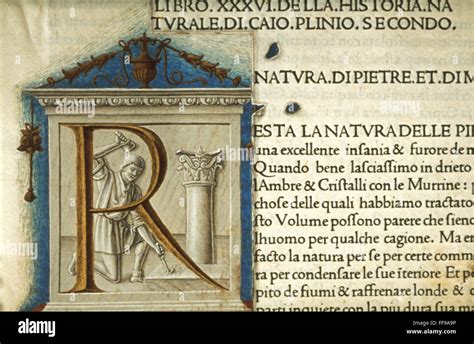 LIBRO. XXXVI. DELLA. HISTORIA. NA
TVRALE. DI. CAIO. PLINIO. SECONDO.
NATVRA. DI PIETRE. ET. DI M
R
ESTA LA NATVRA DELLE PI
una excellente insania & furore de m
Quando bene lasciassimo in drieto
lAmbre & Cristalli con le Murrine: p
chose delle quali habbiamo tractato
sto Volume possono parere che sien
lhuomo per qualche cagione. Ma er
facto la natura per se per certe comm
ra per condensare le sue iteriore Et p
pito de fiumi & raffrenare londe &
parti inquiete con la piu dura sua m
alamy stock photo
FF9A9P